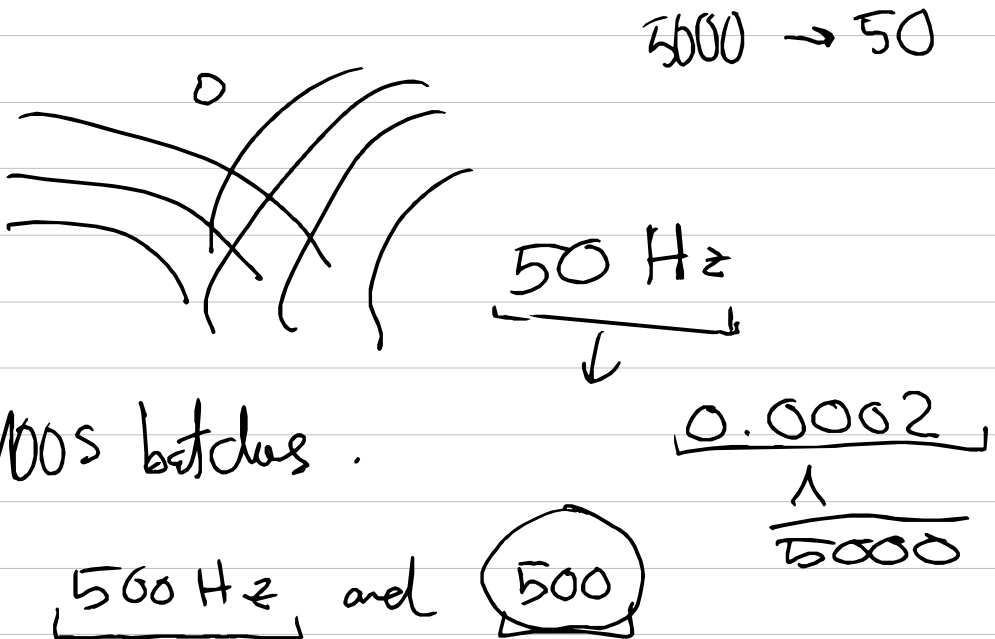 5000 → 50
0
50 Hz
↓
100s batches.
0.0002
1
5000
500 Hz and 500